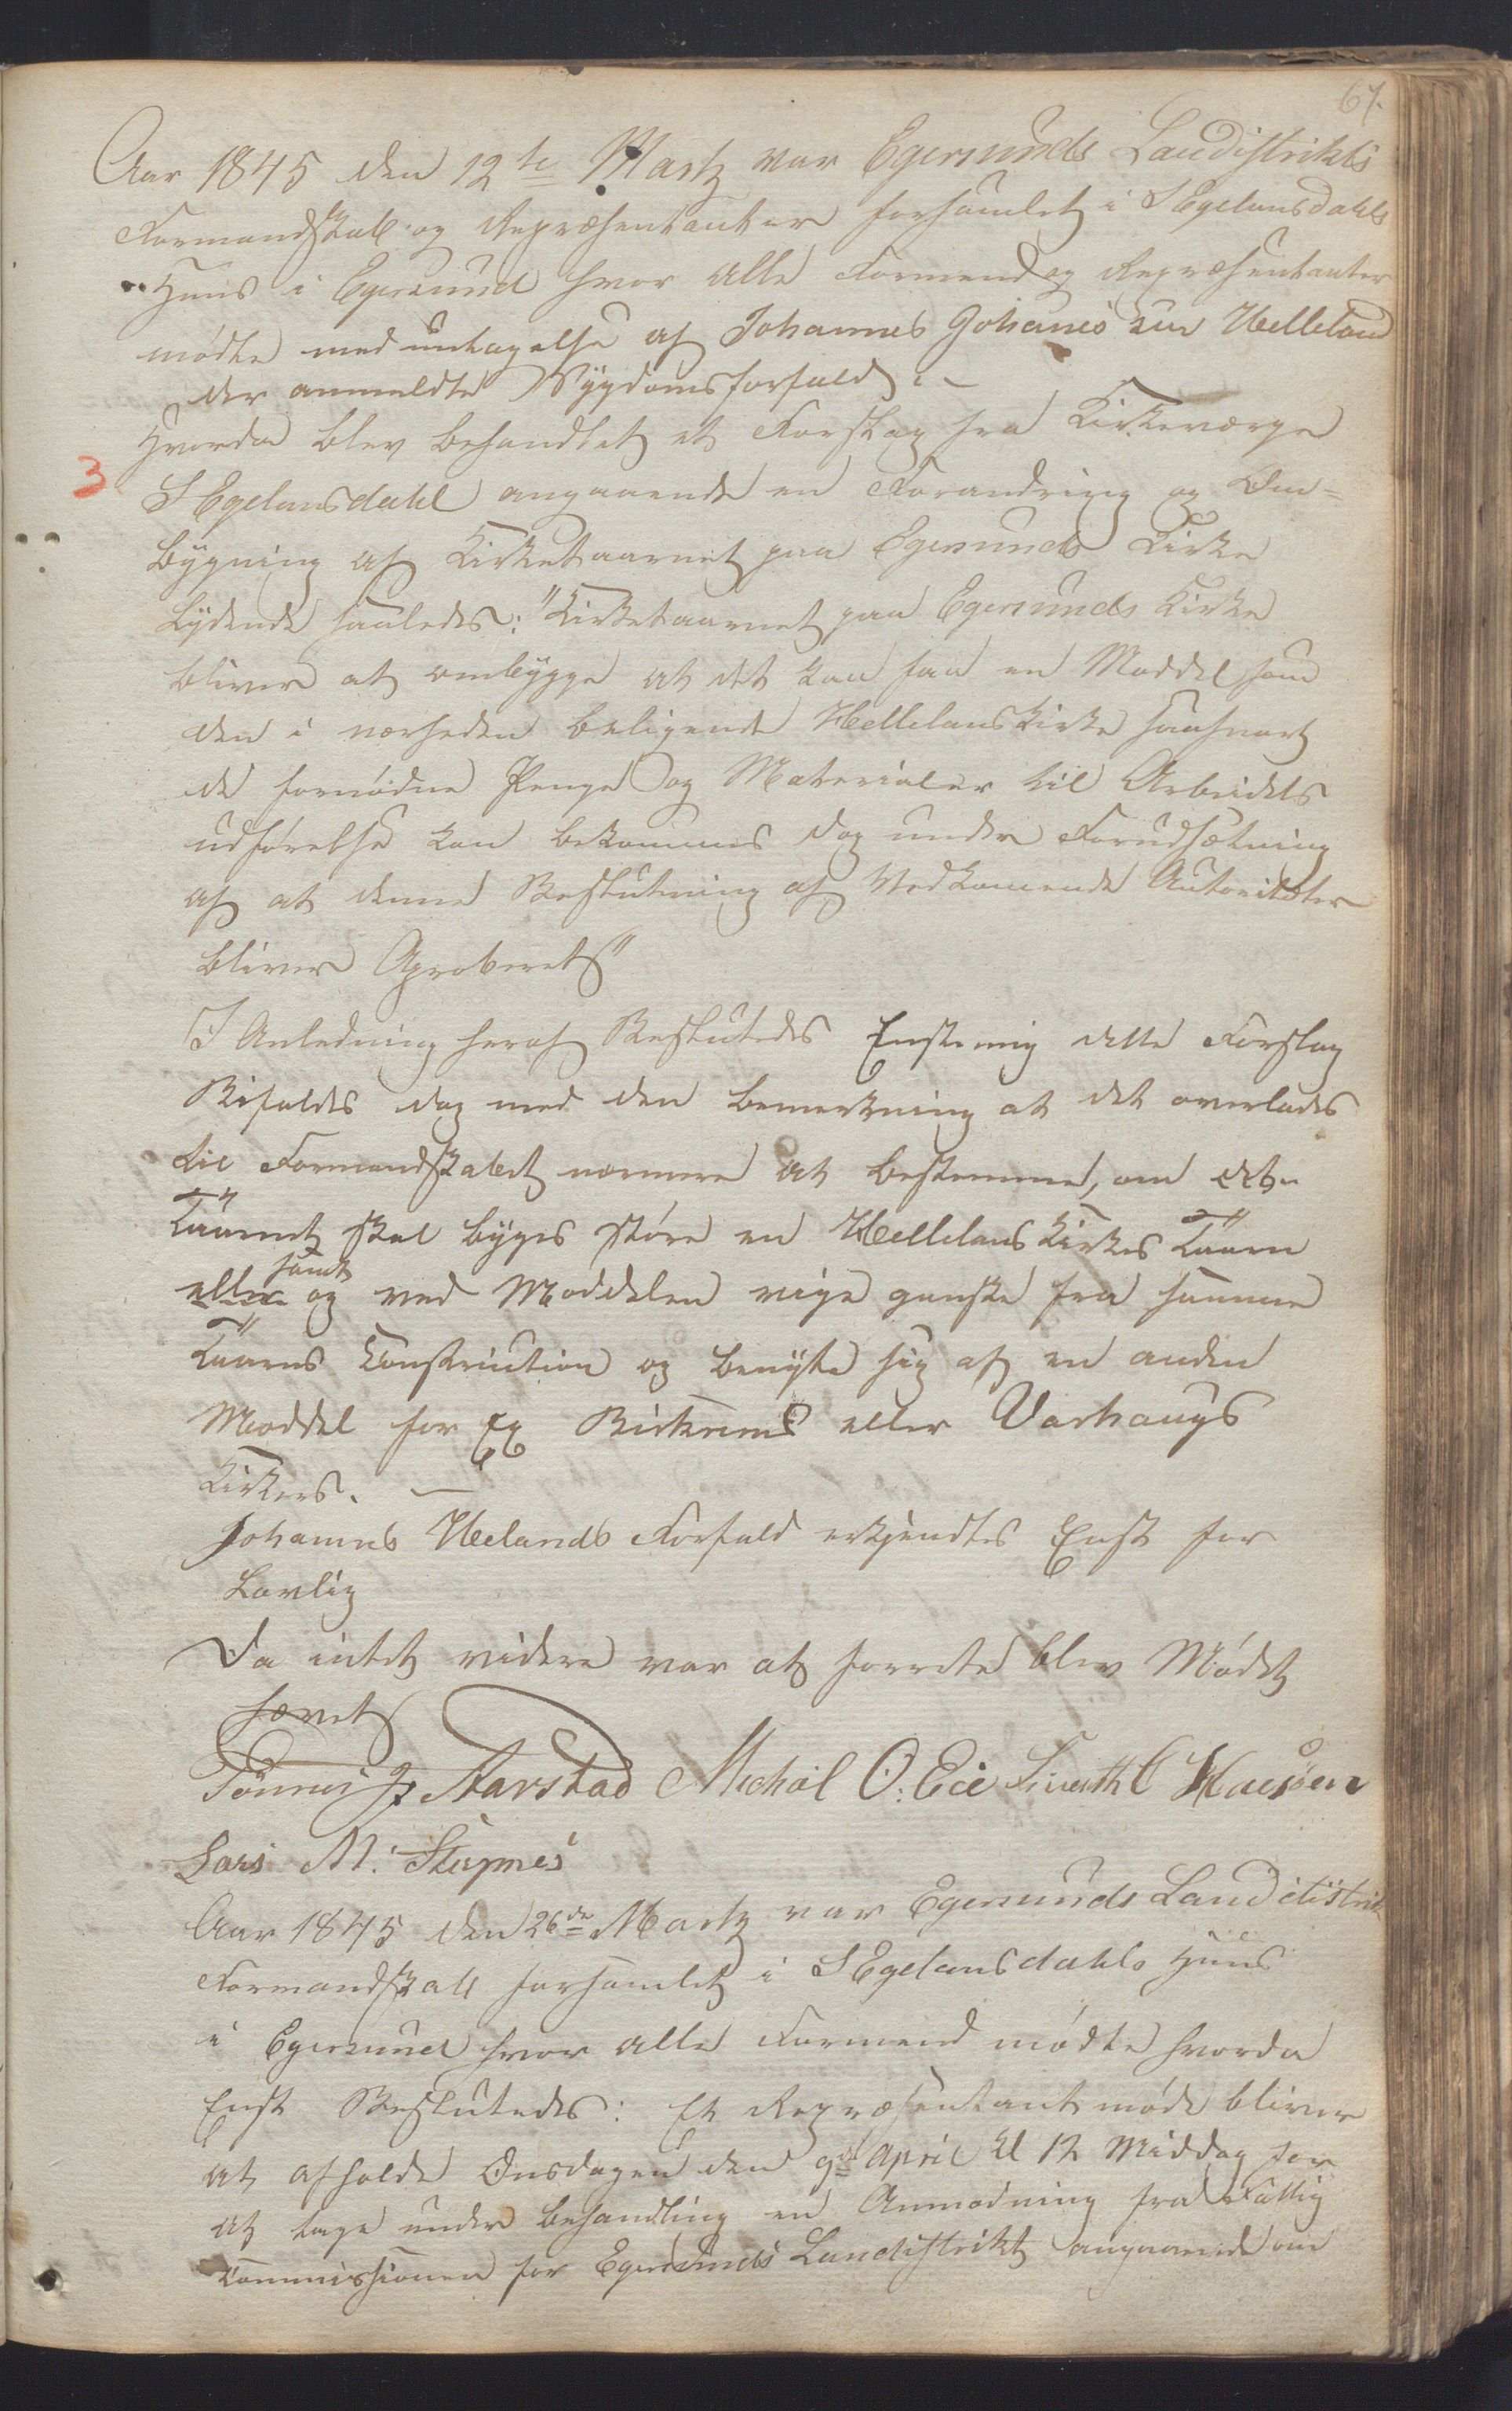 67.
Aar 1845 den 12te Martz var Egersunds Landistrikts
Formandskab og Repræsentanter forsamlet i S Egelansdahls
Huus i Egersund hvor alle Formend og Repræsentanter
mødte med undtagelse af Johannes Johanes sen Helleland
der anmeldte Sygdomsforfald. –
Hvorda blev behandlet et Forslag fra Kirkeværge
3
S Egelansdahl angaaende en Forandring og Om=
bygning af Kirketaarnet paa Egersunds Kirke
Lydende saaledes: "Kirketaarnet paa Egersunds Kirke
bliver at ombygge at det kan faa en Moddel som
den i nærheden beligende Hellelans Kirke saasnart
de fornødne Penge og Materialer til Arbeidets
udførelse kan bekommes dog under Forudsætning
af at denne Beslutning af Vedkomende Autoriteter
bliver Aproberet"
I Anledning heraf Beslutedes Enstemig dette Forslag
Bifaldes dog med den bemerkning at det overlades
til Formandskabet nærmere at bestemme, om det
Taarnet skal bÿges støre en Hellelans Kirkes Taarn
samt
eller og ved Moddelen vige ganske fra samme
Taarns Constriution og benÿte sig af en anden
Moddel for Ex Birkrems eller Varhaugs
Kirkers. —
Johannes Helands Forfald erkjendtes Enst for
Lovlig
Da intet videre var at forrete blev Mødet
hævet
Tønnes J. Aarstad Michal O. Eie Sivert C
Lars M. Skepnes
Aar 1845 den 26de Martz var Egersunds Landistrik
Formandskab forsamlet i S Egelansdahls Huus
i Egersund hvor alle Formend mødte hvorda
Enst Beslutedes: Et Repræsentant møde bliver
at afholde Onsdagen den 9de April Kl 12 Middag for
at tage under behandling en Anmodning fra Fattig
Commissionen for Egersunds Landistrikt angaaende om